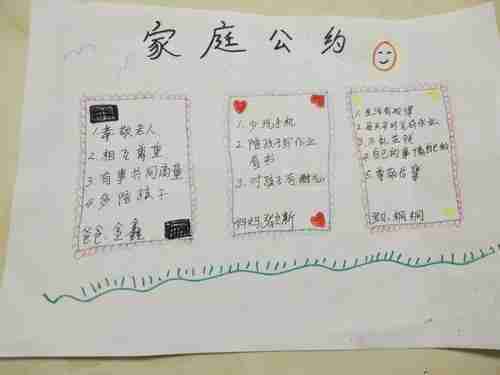 家庭公约
1.孝敬老人
2.相互尊重
3.有事共同商量
4.多陪孩子
爸爸:金鑫
1.少玩手机
2.陪孩子写作业
看书
3.对孩子有耐心
妈妈:
1.生活有规律
2.每天按时完成作业
3.不乱花钱
4.自己的事情自己做
5.尊敬长辈
桐桐